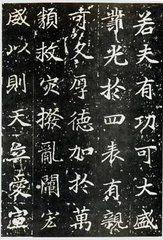 若夫有功可大盛
業光於四表有親
可久厚德加於萬
類救灾撥亂闡宏
威以則天愛宣